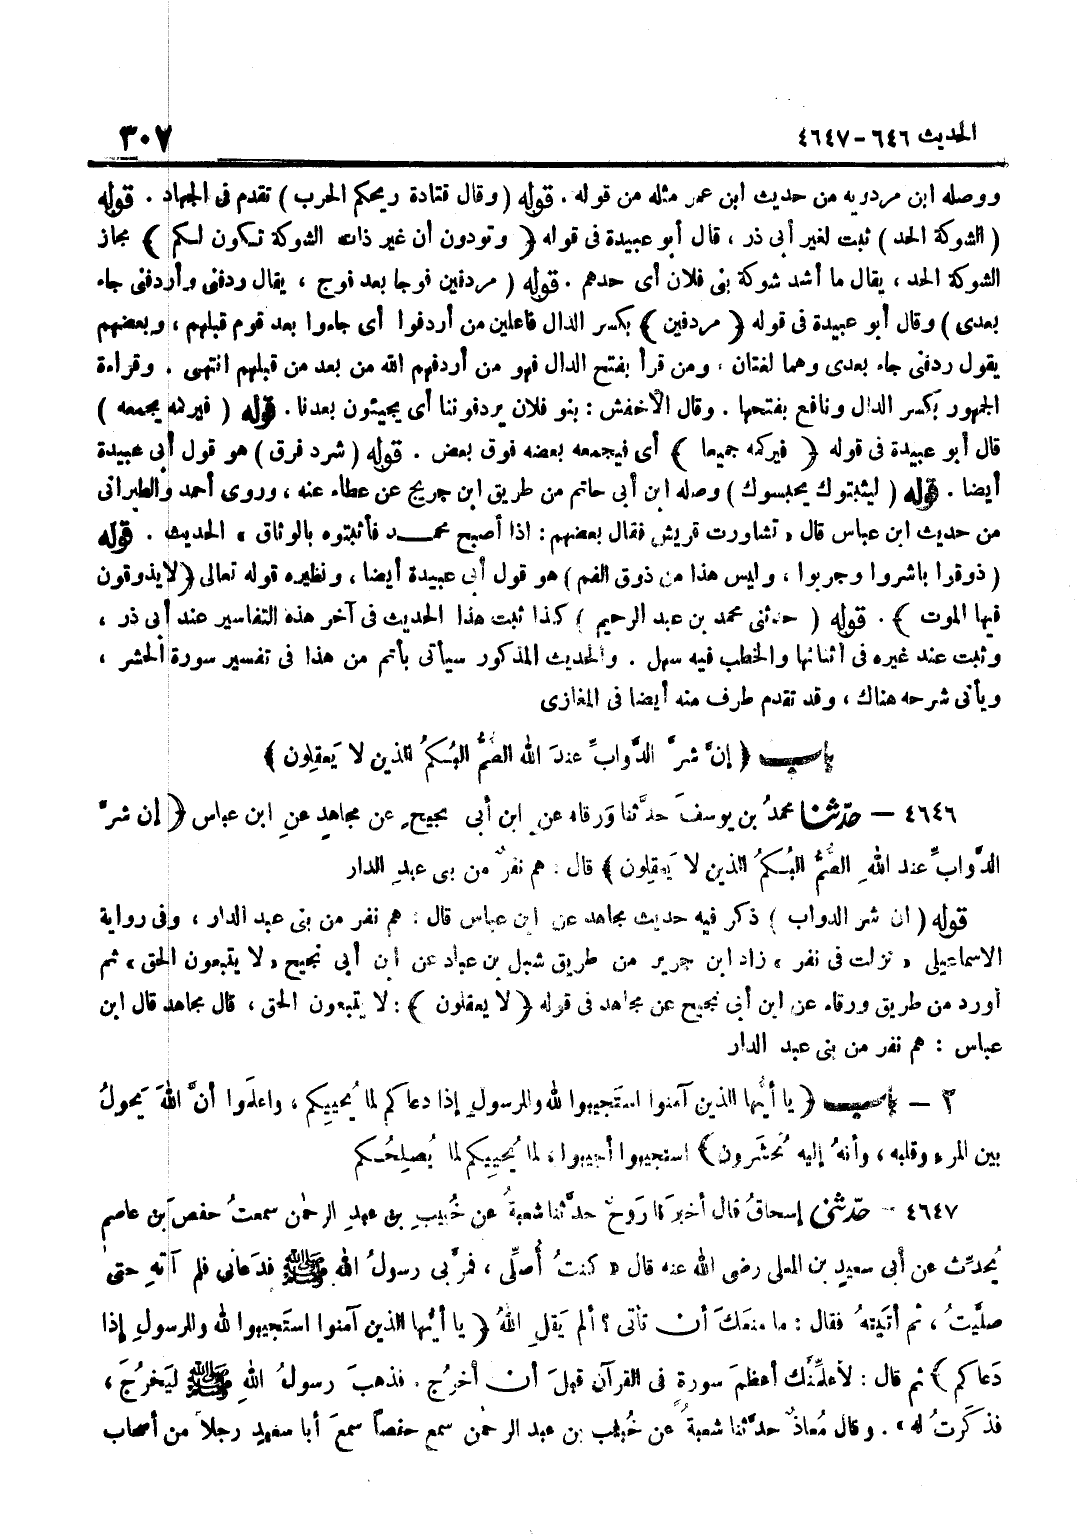 الحديث ٤٦٤٦ - ٤٦٤٧ ٣٠٧
ووصله ابن مردويه من حديث ابن عمر مثله من قوله . قوله ( وقال قتادة ريحكم الحرب ) تقدم فى الجهاد . قوله
( الشوكة الحد ) ثبت لغير أبى ذر ، قال أبو عبيدة فى قوله ﴿ وتودون أن غير ذات الشوكة تكون لكم ﴾ مجاز
الشوكة الحد ، يقال ما أشد شوكة بنى فلان أى حدهم . قوله ( مردفين فوجا بعد فوج ، يقال ردفنى وأردفنى جاء
بعدى ) وقال أبو عبيدة فى قوله ﴿ مردفين ﴾ بكسر الدال فاعلين من أردفوا أى جاءوا بعد قوم قبلهم ، وبعضهم
يقول ردفنى جاء بعدى وهما لغتان ، ومن قرأ بفتح الدال فهو من أردفهم الله من بعد من قبلهم انتهى . وقراءة
الجمهور بكسر الدال ونافع بفتحها . وقال الأخفش : بنو فلان يردفوننا أى يجيئون بعدنا . قوله ( فيركمه يجمعه )
قال أبو عبيدة فى قوله ﴿ فيركمه جميعا ﴾ أى فيجمعه بعضه فوق بعض . قوله ( شرد فرق ) هو قول أبى عبيدة
أيضا . قوله ( ليثبتوك يحبسوك ) وصله ابن أبى حاتم من طريق ابن جريج عن عطاء عنه ، وروى أحمد والطبرانى
من حديث ابن عباس قال « تشاورت قريش فقال بعضهم : اذا أصبح محمد فأثبتوه بالوثاق » الحديث . قوله
( ذوقوا باشروا وجربوا ، وليس هذا من ذوق الفم ) هو قول أبى عبيدة أيضا ، ونظيره قوله تعالى ﴿ لا يذوقون
فيها الموت ﴾ . قوله ( حدثنى محمد بن عبد الرحيم ) كذا ثبت هذا الحديث فى آخر هذه التفاسير عند أبى ذر ،
وثبت عند غيره فى أثنائها والخطب فيه سهل . والحديث المذكور سيأتى بأتم من هذا فى تفسير سورة الحشر ،
ويأتى شرحه هناك ، وقد تقدم طرف منه أيضا فى المغازى
باب ﴿ إنَّ شرَّ الدَّوابِّ عندَ الله الصُّمُّ البُكمُ الذين لا يَعقِلون ﴾
٤٦٤٦ — حدّثنا محمدُ بن يوسفَ حدَّثنا وَرقاء عن ابن أبى نجيحٍ عن مجاهدٍ عنِ ابن عباس ﴿ إن شرَّ
الدَّوابِّ عند اللهِ الصُّمُّ البُكمُ الذين لا يَعقِلون ﴾ قال : هم نفرٌ من بنى عبدِ الدار
قوله ( ان شر الدواب ) ذكر فيه حديث مجاهد عن ابن عباس قال : هم نفر من بنى عبد الدار ، وفى رواية
الاسماعيلى « نزلت فى نفر » زاد ابن جرير من طريق شبل بن عباد عن ابن أبى نجيح « لا يتبعون الحق » ثم
أورد من طريق ورقاء عن ابن أبى نجيح عن مجاهد فى قوله ﴿ لا يعقلون ﴾ : لا يتبعون الحق ، قال مجاهد قال ابن
عباس : هم نفر من بنى عبد الدار
٢ - باب ﴿ يا أيُّها الذين آمنوا استَجيبوا لله وللرسولِ إذا دعاكم لما يُحييكم ، واعلَموا أنَّ اللهَ يَحولُ
بين المرء وقلبه ، وأنهُ إليه تُحشَرون ﴾ استجيبوا أجيبوا ، لما يُحييكم لما يُصلِحُكم
٤٦٤٧ - حدّثنى إسحاقُ قال أخبرَنا رَوحٌ حدَّثنا شعبةُ عن خُبيبِ بن عبدِ الرحمٰن سمعتُ حفصَ بن عاصم
يُحدِّث عن أبى سعيدِ بن المعلى رضى الله عنه قال « كنتُ أُصلِّى ، فمرَّ بى رسولُ الله ﷺ فدَعانى فلم آتهِ حتى
صليَّتُ ، ثم أتَيتهُ فقال : ما منعَكَ أن تأتى ؟ ألم يَقلِ اللهُ ﴿ يا أيُّها الذين آمنوا استَجيبوا لله وللرسولِ إذا
دَعاكم ﴾ ثم قال : لأُعلِّمنَّك أعظمَ سورةٍ فى القرآن قبلَ أن أخرُج . فذهبَ رسولُ اللهِ ﷺ ليَخرُجَ ،
فذكَرتُ له » . وقال مُعاذٌ حدَّثنا شعبةُ عن خُبيب بن عبد الرحمٰن سمع حفصاً سمعَ أبا سعيدٍ رجلاً من أصحاب